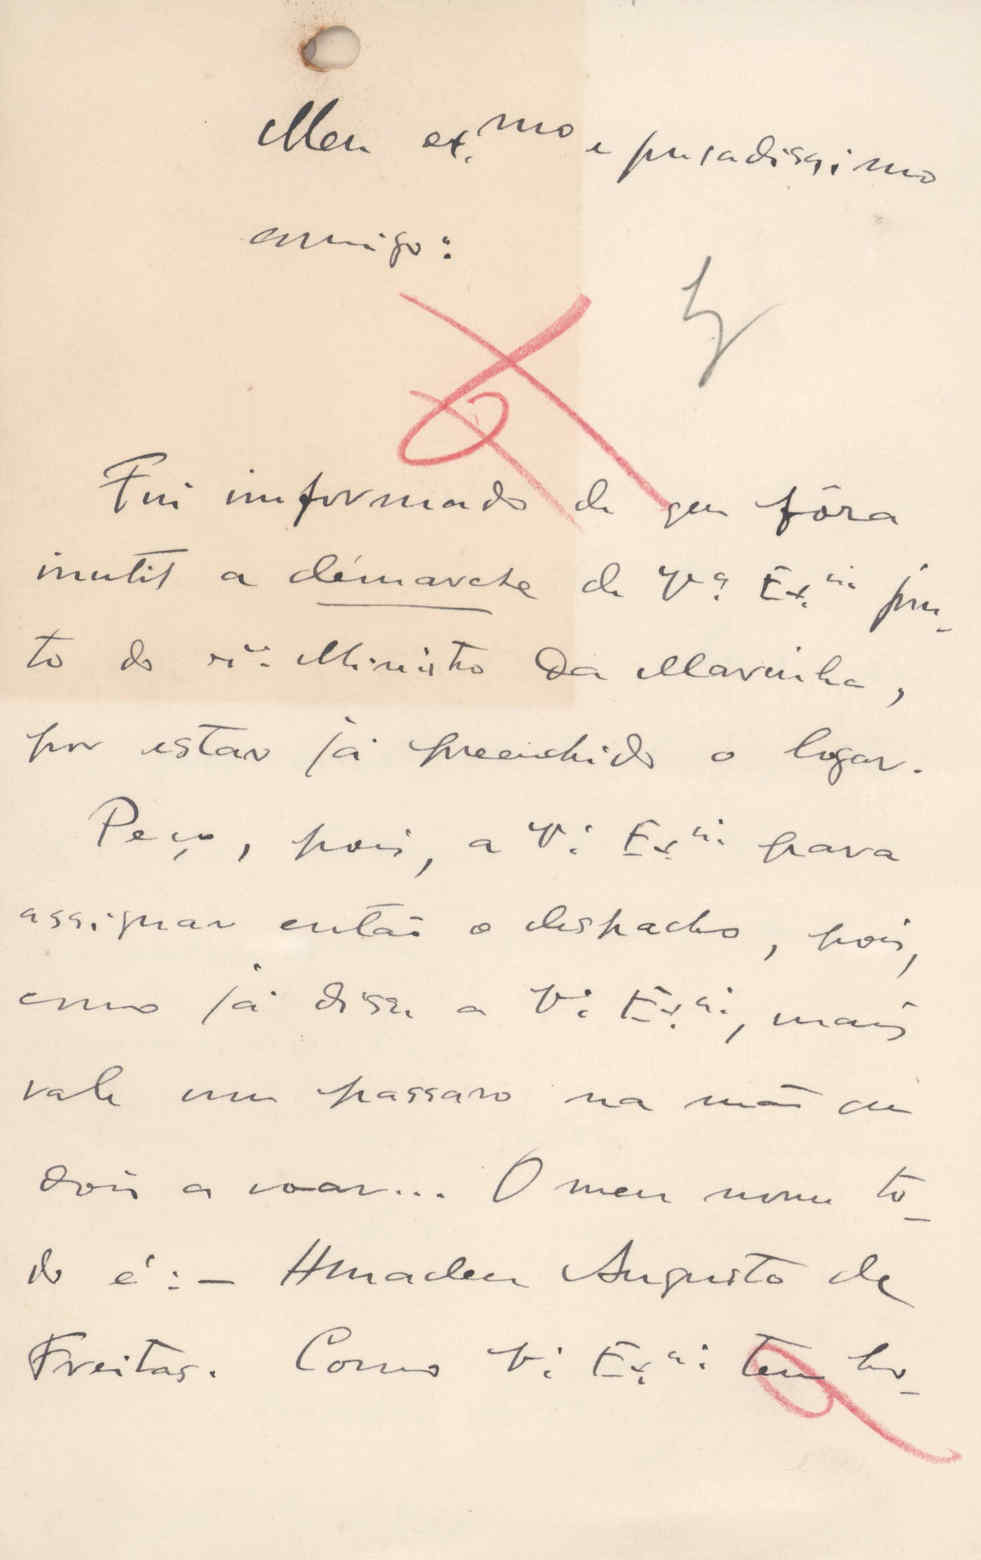 Meu ex.mo e presadissimo
amigo:
Fui informado de que fôra
inutil a démarche de V.ª Ex.cia jun-
to do sr. Ministro da Marinha,
por estar já preenchido o logar.
Peço, pois, a V. Ex.cia para
assignar então o despacho, pois,
como já disse a V. Ex.cia, mais
vale um passaro na mão que
dois a voar... O meu nome to-
do é: — Amadeu Augusto de
Freitas. Como V. Ex.cia tem ho-